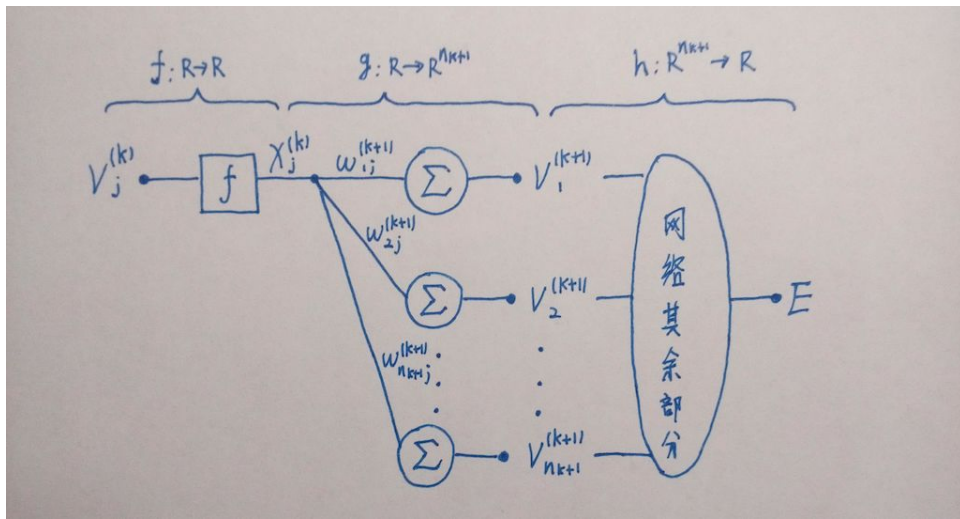 f: R→R
g: R→R^{n_{k+1}}
h: R^{n_{k+1}}→R
V_j^{(k)}
f
X_j^{(k)}
w_{1j}^{(k+1)}
Σ
V_1^{(k+1)}
w_{2j}^{(k+1)}
Σ
V_2^{(k+1)}
w_{n_{k+1}j}^{(k+1)}
Σ
V_{n_{k+1}}^{(k+1)}
网络其余部分
E